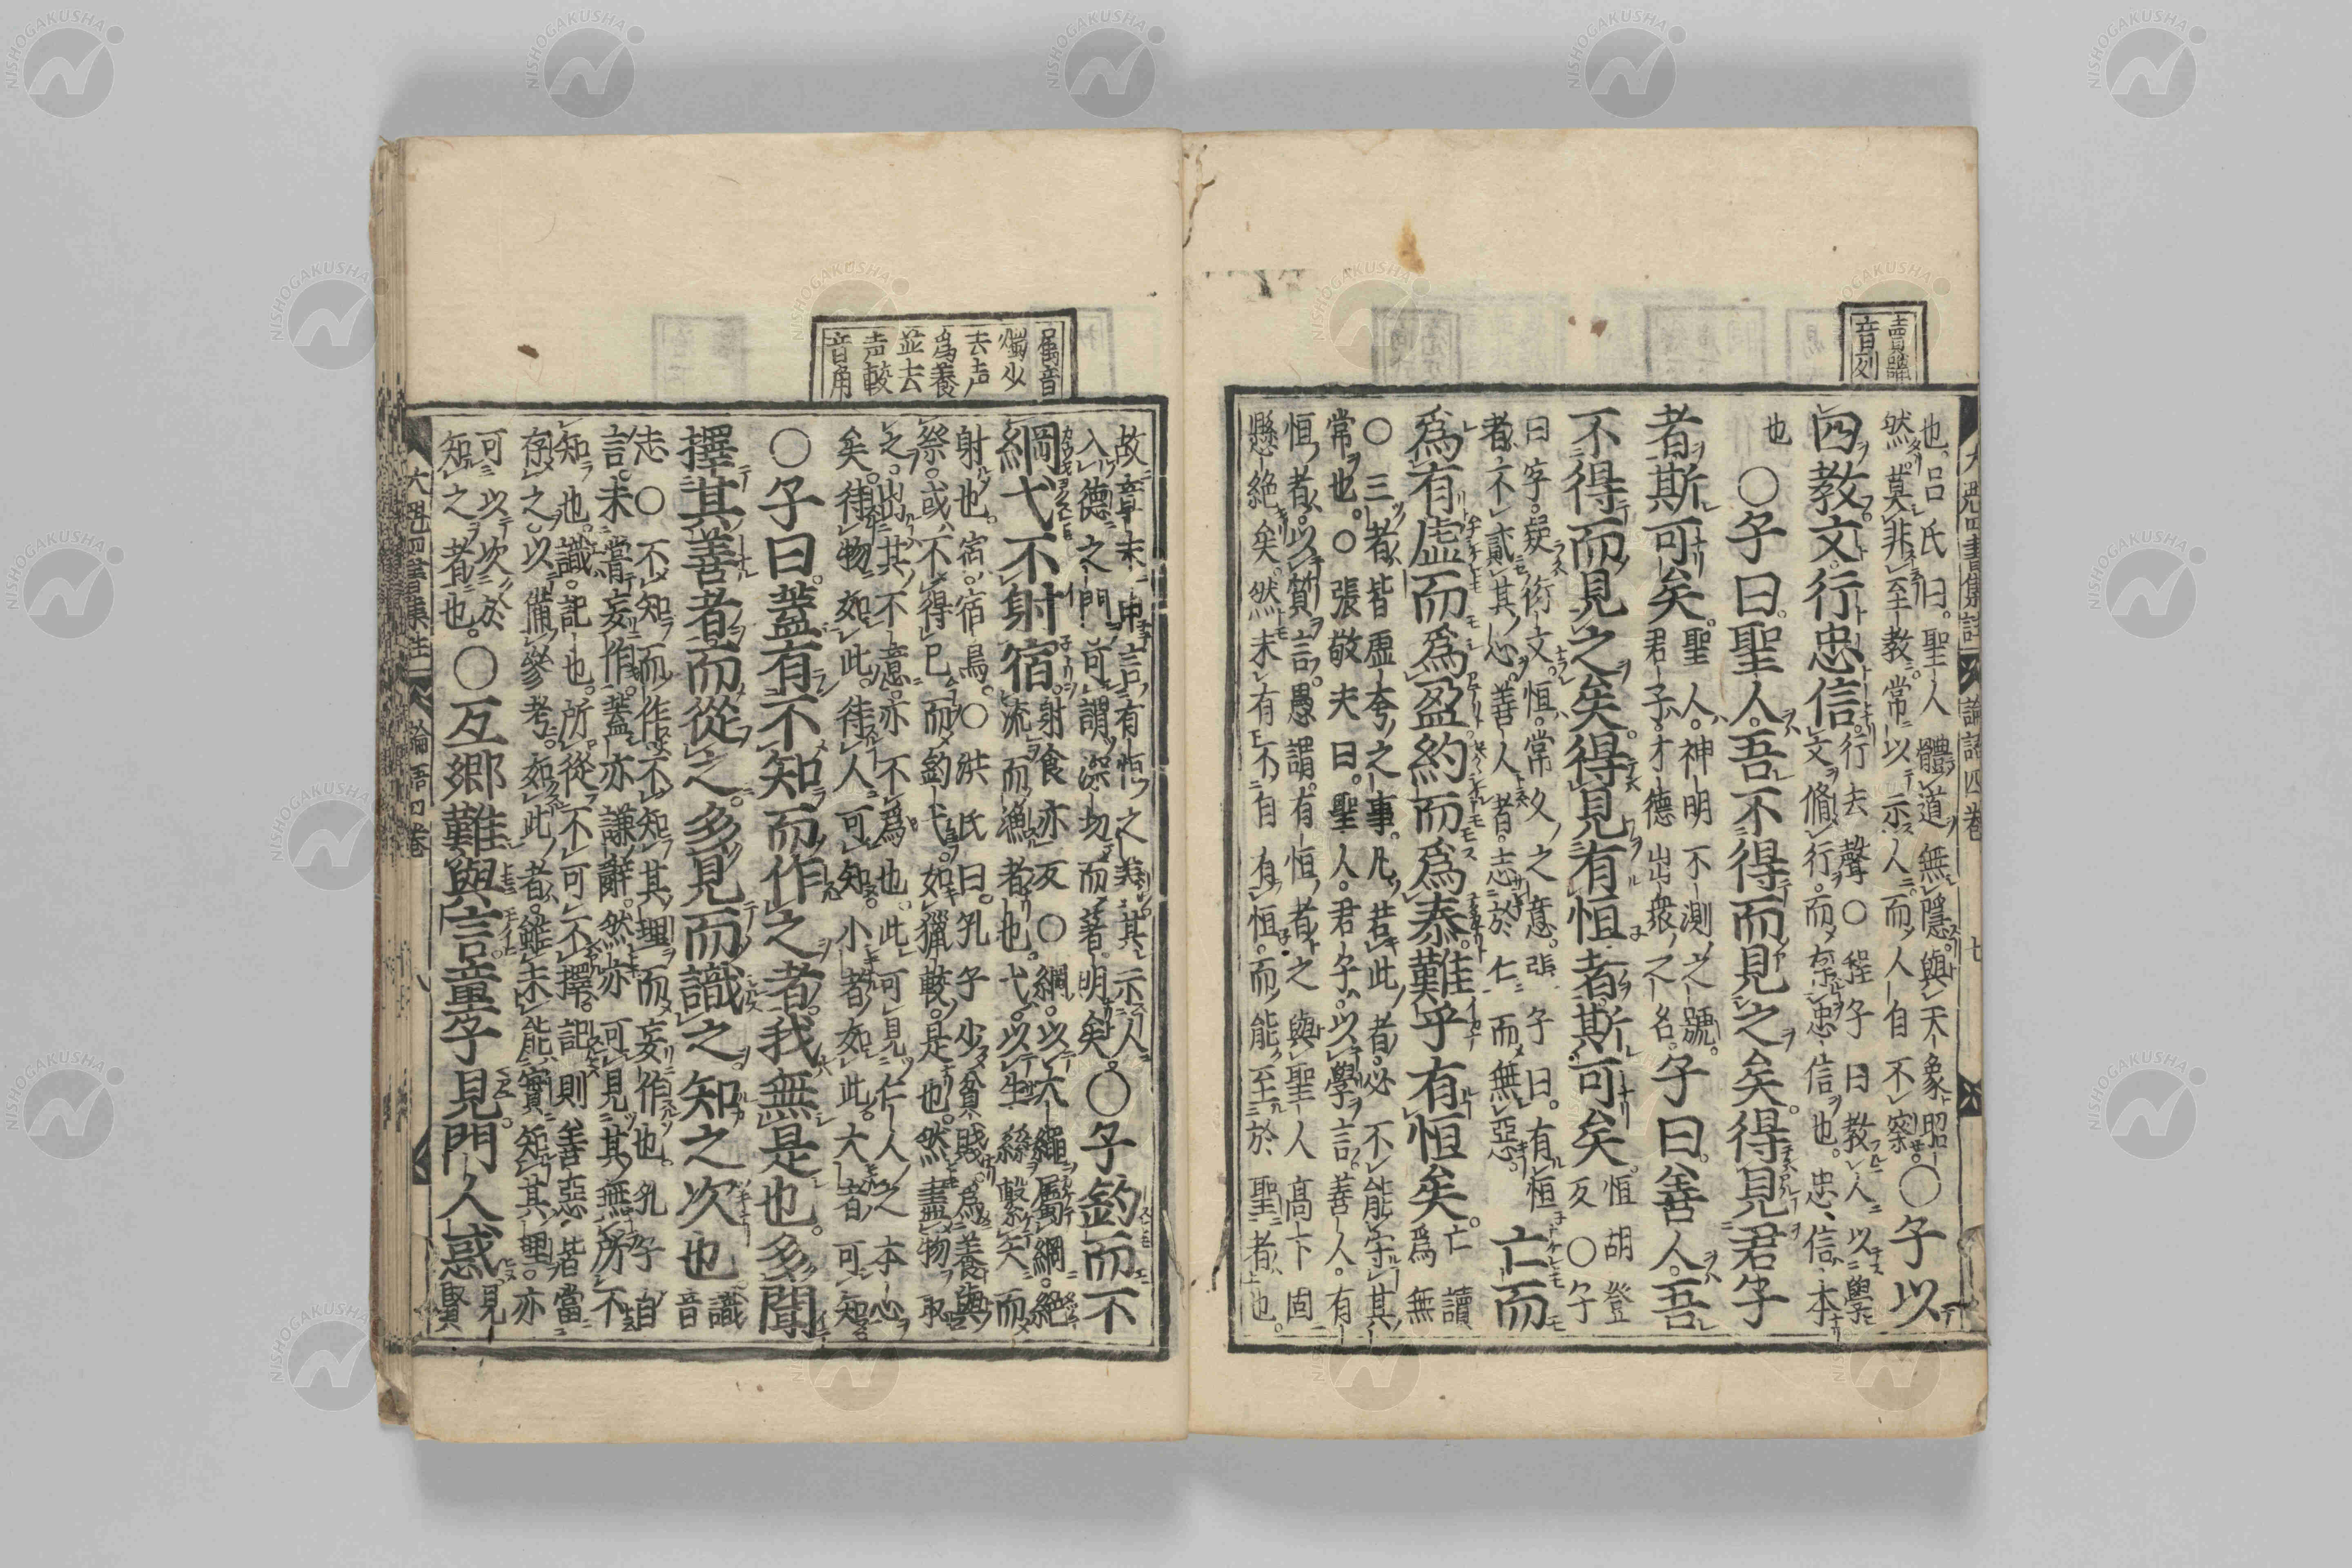 賣躙
音刻
也呂氏曰聖人體道無隱與天象昭
然莫非至教常以示人而人自不察○子以
四教文行忠信行去聲○程子曰教人以學
文脩行而存忠信也忠信本
也○子曰聖人吾不得而見之矣得見君子
者斯可矣聖人神明不測之號
君子才德出衆之名子曰善人吾
不得而見之矣得見有恒者斯可矣恒胡登
反○子
曰字疑衍文恒常久之意張子曰有恒
者不貳其心善人者志於仁而無惡亡而
爲有虛而爲盈約而爲泰難乎有恒矣亡讀
爲無
○三者皆虛夸之事凡若此者必不能守其
常也○張敬夫曰聖人君子以學言善人有
恒者以質言愚謂有恒者之與聖人高下固
懸絶矣然未有不自有恒而能至於聖者也
大魁四書集註 論語四巻 七
屬音
燭少
去声
爲養
並去
声較
音角
故章末申言有恒之義其示人
入德之門可謂深切而著明矣○子釣而不
綱弋不射宿射食亦反○綱以大繩屬網絶
流而漁者也弋以生絲繫矢而
射也宿宿鳥○洪氏曰孔子少貧賤爲養與
祭或不得已而釣弋如獵較是也然盡物取
之出其不意亦不爲也此可見仁人之本心
矣待物如此待人可知小者如此大者可知
○子曰蓋有不知而作之者我無是也多聞
擇其善者而從之多見而識之知之次也識
音
志○不知而作不知其理而妄作也孔子自
言未嘗妄作蓋亦謙辭然亦可見其無所不
知也識記也所從不可不擇記則善惡皆當
存之以備參考如此者雖未能實知其理亦
可以次於
知之者也○互郷難與言童子見門人惑見
賢
大魁四書集註 論語四巻 八
NISHOGAKUSHA